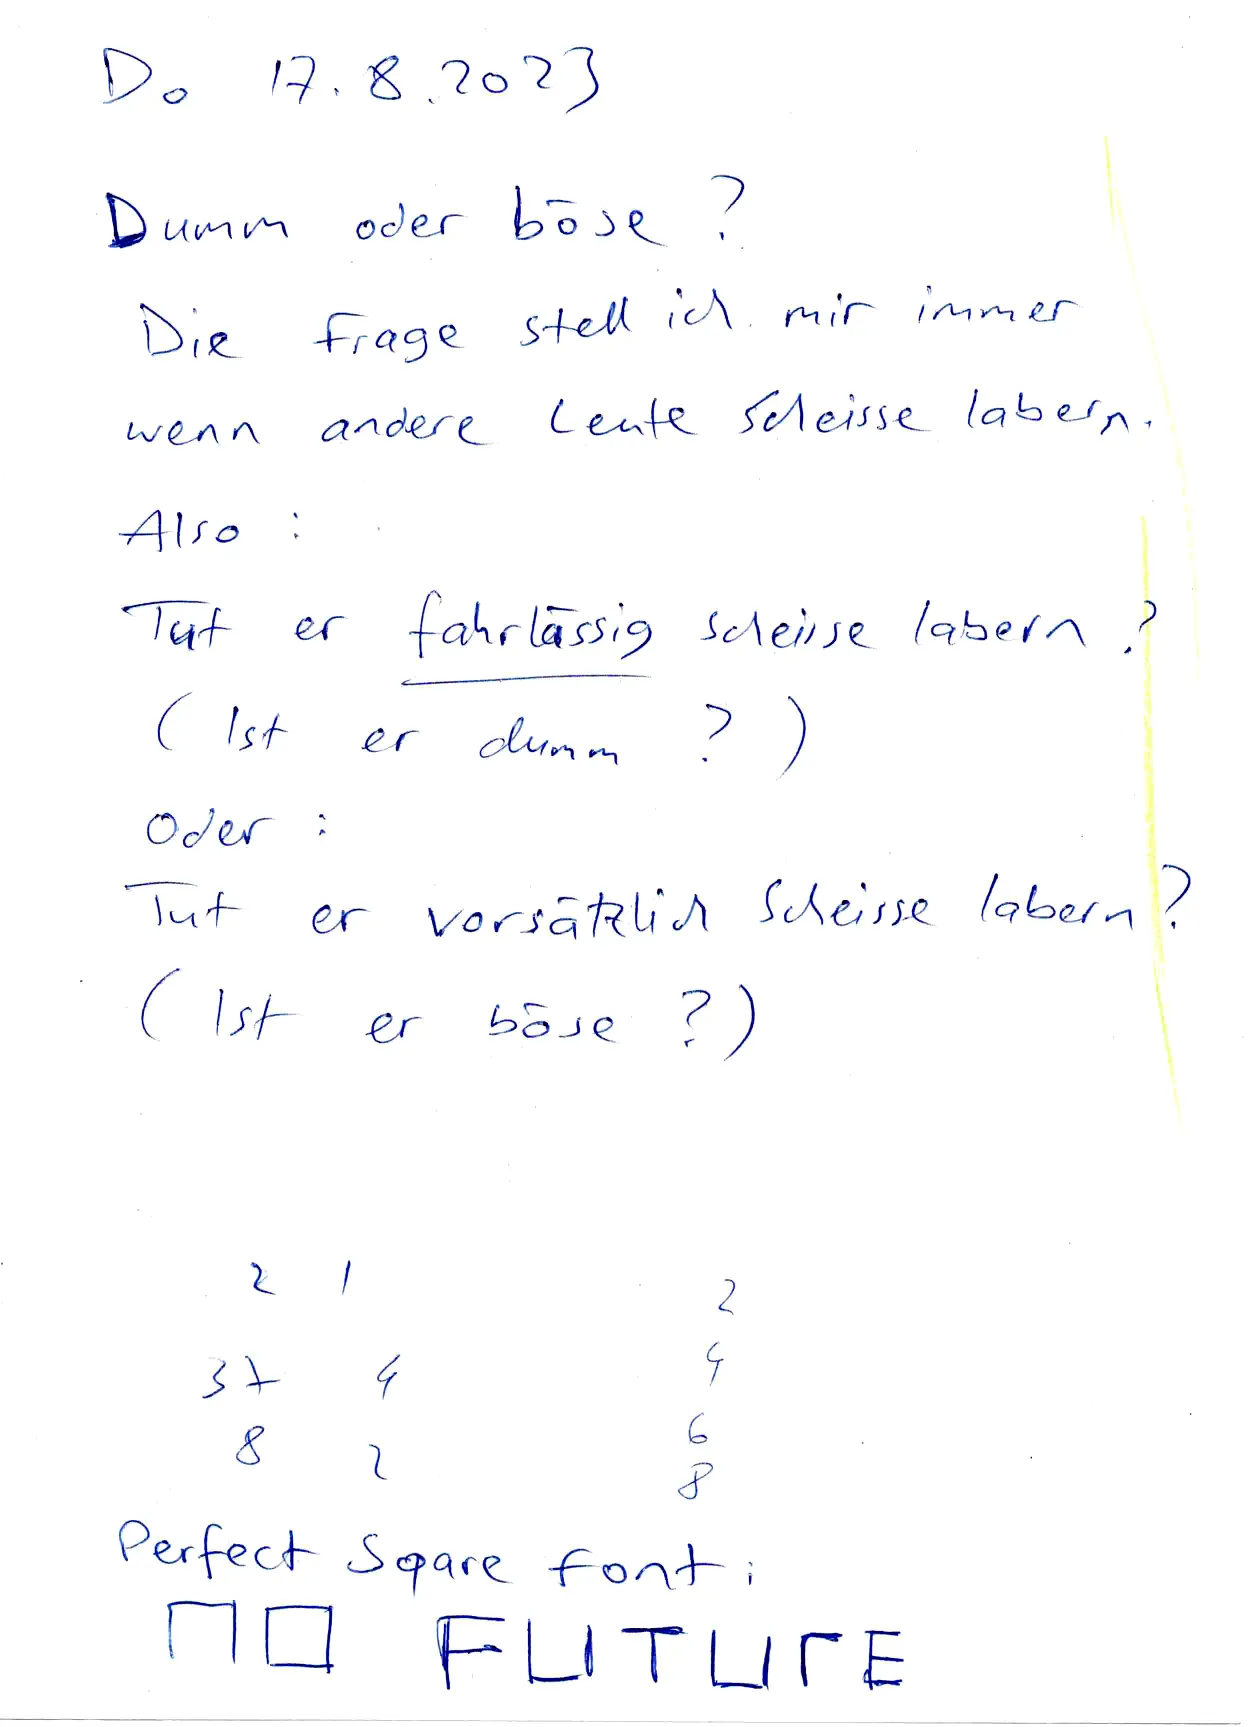 Do 17.8.2023
Dumm oder böse?
Die Frage stell ich mir immer
wenn andere Leute Scheisse labern.
Also:
Tut er fahrlässig scheisse labern?
(Ist er dumm?)
Oder:
Tut er vorsätzlich Scheisse labern?
(Ist er böse?)
2 1 2
37 4 4
8 2 6
8
Perfect Sqare font:
NO FUTURE